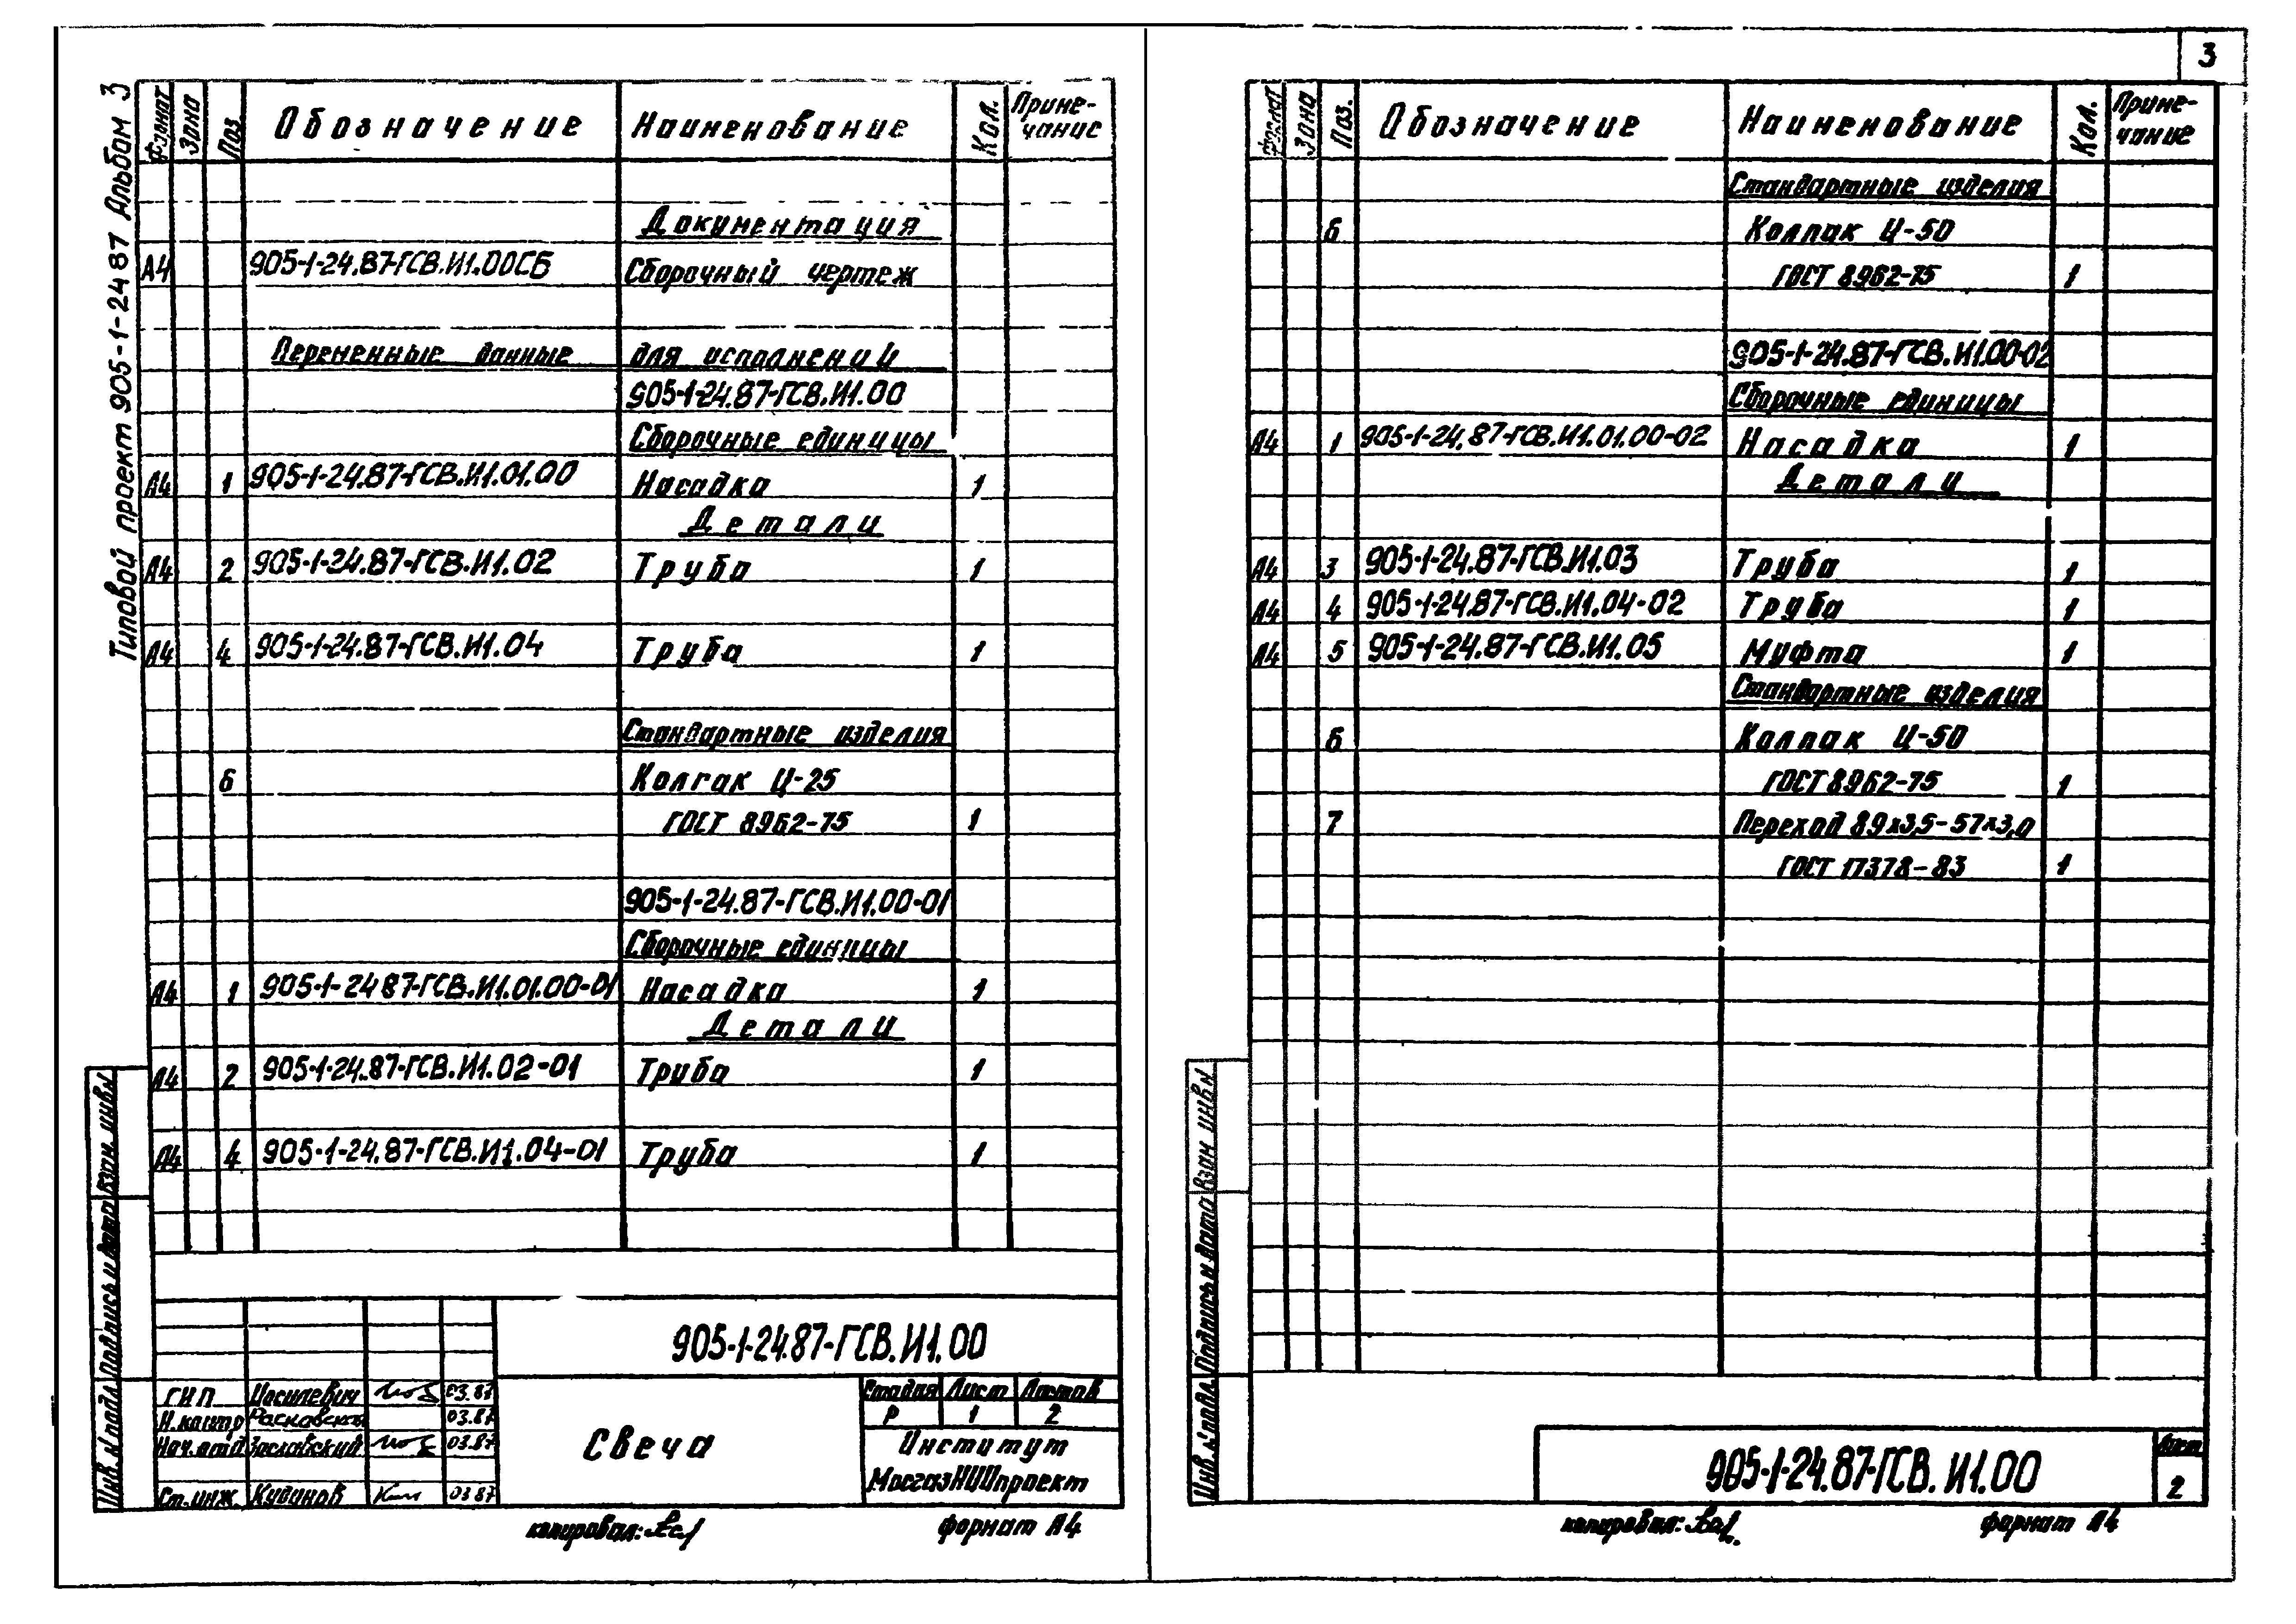 3
Типовой проект 905-1-24 87 Альбом 3
Формат Зона Поз. Обозначение Наименование Кол. Приме-
чание
Документация
А4 905-1-24.87-ГСВ.И1.00СБ Сборочный чертеж
Переменные данные для исполнений
905-1-24.87-ГСВ.И1.00
Сборочные единицы
А4 1 905-1-24.87-ГСВ.И1.01.00 Насадка 1
Детали
А4 2 905-1-24.87-ГСВ.И1.02 Труба 1
А4 4 905-1-24.87-ГСВ.И1.04 Труба 1
Стандартные изделия
6 Колпак Ц-25
ГОСТ 8962-75 1
905-1-24.87-ГСВ.И1.00-01
Сборочные единицы
А4 1 905-1-24 87-ГСВ.И1.01.00-01 Насадка 1
Детали
А4 2 905-1-24.87-ГСВ.И1.02-01 Труба 1
А4 4 905-1-24.87-ГСВ.И1.04-01 Труба 1
Инв.№подл Подпись и дата Взам. инв№
905-1-24.87-ГСВ.И1.00
ГИП Иосилевич 03.87
Н.контр 03.87
Нач.отд Заславский 03.87
Ст.инж Кудинов 03 87
Свеча
Стадия Лист Листов
Р 1 2
Институт
МосгазНИИпроект
копировал: формат А4
Формат Зона Поз. Обозначение Наименование Кол. Приме-
чание
Стандартные изделия
6 Колпак Ц-50
ГОСТ 8962-75 1
905-1-24.87-ГСВ.И1.00-02
Сборочные единицы
А4 1 905-1-24.87-ГСВ.И1.01.00-02 Насадка 1
Детали
А4 3 905-1-24.87-ГСВ.И1.03 Труба 1
А4 4 905-1-24.87-ГСВ.И1.04-02 Труба 1
А4 5 905-1-24.87-ГСВ.И1.05 Муфта 1
Стандартные изделия
6 Колпак Ц-50
ГОСТ 8962-75 1
7 Переход 89х3,5-57х3,0
ГОСТ 17378-83 1
Инв.№подл Подпись и дата Взам инв№
905-1-24.87-ГСВ.И1.00
Лист
2
копировал: формат А4